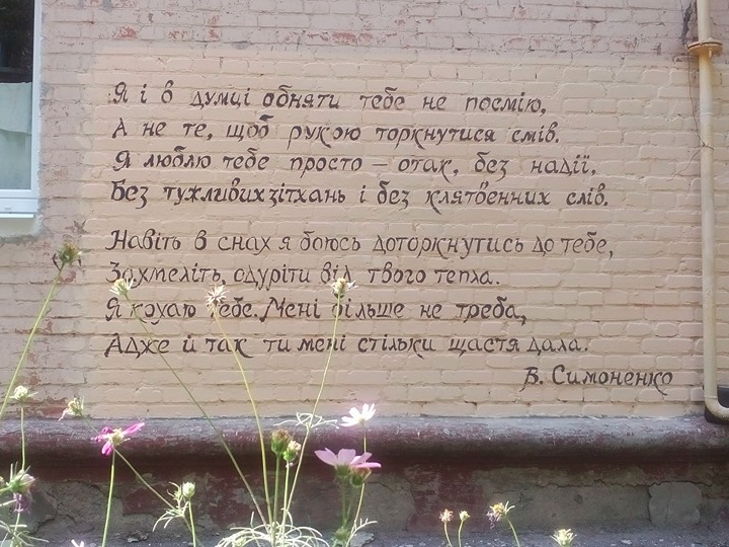 Я і в думці обняти тебе не посмію,
А не те, щоб рукою торкнутися смів.
Я люблю тебе просто – отак, без надії,
Без тужливих зітхань і без клятвенних слів.
Навіть в снах я боюсь доторкнутись до тебе,
Захмеліть, одуріти від твого тепла.
Я кохаю тебе. Мені більше не треба,
Адже й так ти мені стільки щастя дала.
В. Симоненко